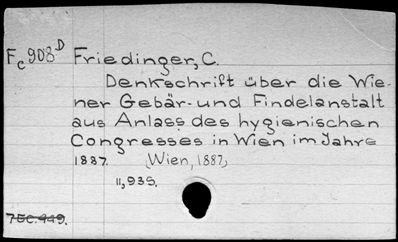 Fc 908 D Friedinger, C.
Denkschrift über die Wie-
ner Gebär- und Findelanstalt
aus Anlass des hygienischen
Congresses in Wien im Jahre
1887. (Wien, 1887)
11,939.
75c.449.